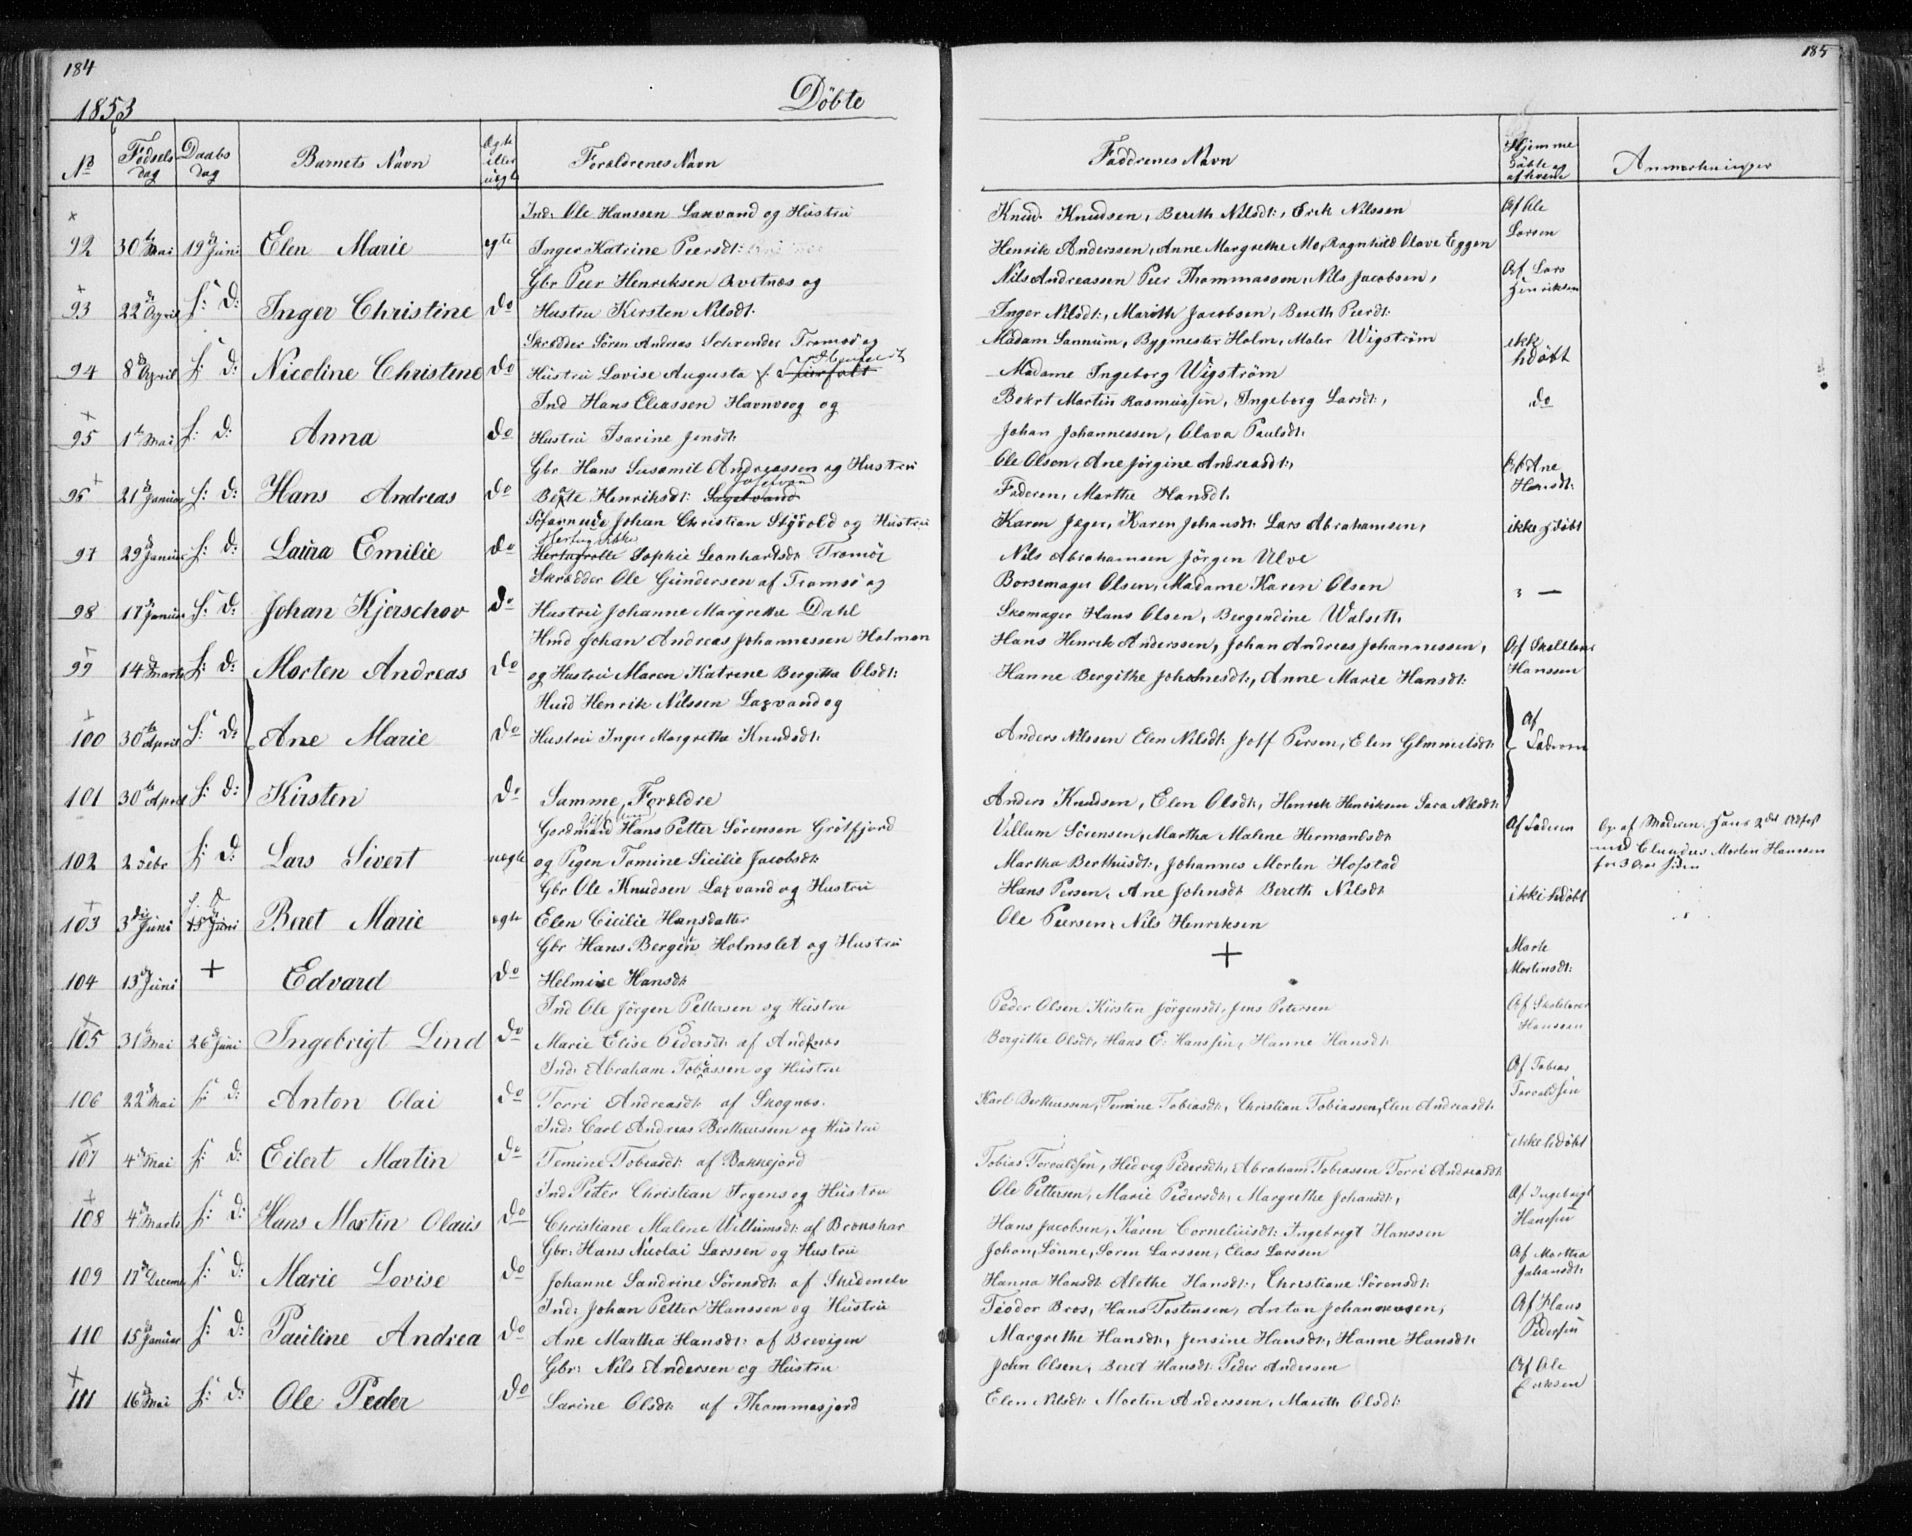 184
185
1853
Döbte
No Fødsels dag Daabs dag Barnets Navn Ægte eller uægte Forældrenes Navn Faddrenes Navn Hjemme döbte og af hvem Anmærkninger
Ind: Ole Hanssen Laxvand og Hustru Knud Knudsen, Bereth Nilsdt:, Erik Nilssen Af Ole
92 30te Mai 19de Juni Elen Marie egte Inger Katrine Peersdt: Henrik Anderssen, Anne Margrethe Mo, Ragnhild Olave Eggen Larsen
Gbr Peer Henriksen Qvitnæs og Nils Andreassen Peer Thommassen, Nils Jacobsen, Af Lars
93 22de April f: d: Inger Christine do Hustru Kirsten Nilsdt: Inger Nilsdt:, Marith Jacobsen, Bereth Peersdt: Henriksen
Skrædder Sören Andreas Schrender Tromsø og Madam Sannum, Bygmester Holm, Maler Wigström ikke
94 8de April f: d: Nicoline Christine do Hustru Lovise Augusta Madame Ingeborg Wigström hdøbt
Ind Hans Eliassen Havnvog og Bekrt Martin Rasmussen, Ingeborg Larsdt:, do
95 1te Mai f: d: Anna do Hustru Isarine Jensdt: Johan Johannessen, Olava Paulsdt:
Gbr Hans Susamil Andreassen og Hustru Ole Olsen, Ane Jørgine Andreasdt:, Af Ane
96 21de Januar f: d: Hans Andreas do Berte Henriksdt: Sagelvand Faderen, Marthe Hansdt: Hansdt:
Søfarende Johan Christian Styvold og Hustru Karen Jeger, Karen Johansdt: Lars Abrahamsen, ikke hdøbt
97 29de Januar f: d: Laura Emilie do Sophie Leonhardsdt: Tromsø Nils Abrahamsen Jörgen Ulve
Skrædder Ole Gundersen af Tromsø og Borsemager Olsen, Madame Karen Olsen
98 17de Januar f: d: Johan Kjerschov do Hustru Johanne Margrethe Dahl Skomager Hans Olsen, Bergendine Walseth
Huud Johan Andreas Johannessen Holman Hans Henrik Anderssen, Johan Andreas Johannessen, Af Skollærer
99 14de Marts f: d: Morten Andreas do og Hustru Maren Katrine Bergitta Olsdt: Hanne Bergithe Johanesdt:, Anne Marie Hansdt: Hanssen
Huud Henrik Nilssen Laxvand og
100 30te April f: d: Ane Marie do Hustru Inger Margrethe Knudsdt: Anders Nilssen Elen Nilsdt: Joff Persen, Elen Glmmelsdt: Af Faderen
101 30te April f: d: Kirsten do Samme Forældre Anders Knudsen, Elen Olsdt:, Henrik Henriksen Sara Nilsdt:
Gordmand Hans Petter Sörensen Grötfjord Villum Sörensen, Martha Malene Hermandsdt: Af Faderen Op af Modren. Hans 2det
102 2 Febr f: d: Lars Sivert uægte og Pigen Tomine Sicilie Jacobsdt: Martha Berthusdt:, Johannes Morten Hofstad med Morten Hanssen
for 3 Aar siden
Gbr Ole Knudsen Laxvand og Hustru Hans Persen, Ane Johnsdt: Bereth Nilsdt: ikke hdøbt
103 3die Juni 15 Juni f: d: Beret Marie egte Elen Cicilie Hansdatter Ole Peersen, Nils Henriksen
Gbr Hans Bergen Holmslet og Hustru + Marte
104 13de Juni + Edvard do Helmine Hansdt: Mortensdt:
Ind Ole Jörgen Pettersen og Hustru Peder Olsen Kirsten Jørgensdt:, Jens Petersen Af Skollærer
105 31te Mai 26de Juni Ingebrigt Lind do Marie Elise Pedersdt: af Andsnæs Bergithe Olsdt:, Hans E. Hanssen, Hanne Hansdt: Hanssen
Ind: Abraham Tobiassen og Hustru Af Tobias
106 22de Mai f: d: Anton Olai do Torri Andreasdt: af Skognæs. Karl Berthussen, Temine Tobiasdt:, Christian Tobiassen, Elen Andreasdt: Torvaldsen
Ind: Carl Andreas Berthussen og Hustru ikke hdøbt
107 4de Mai f: d: Eilert Martin do Temine Tobiasdt: af Bakkejord Tobias Torvaldsen, Hedvig Pedersdt:, Abraham Tobiassen Torri Andreasdt:
Ind Peter Christian Irgens og Hustru Ole Pettersen, Marie Pedersdt:, Margrethe Johansdt:, Af Ingebrigt
108 4de Marts f: d: Hans Martin Olaus do Christiane Malene Willumsdt: af Bronskar Hans Jacobsen, Karen Corneliusdt: Ingebrigt Hanssen Hanssen
Gbr: Hans Nicolai Larssen og Hustru Johan Lönne, Soren Larssen, Elias Larssen Af Martha
109 17de Decembr f: d: Marie Lovise do Johanne Sandrine Sörensdt: af Skidenelv Hanna Hansdt: Alethe Hansdt:, Christiane Sörensdt: Johansdt:
Ind: Johan Petter Hanssen og Hustru Teodor Bros, Hans Tostensen, Anton Johannessen, Af Hans
110 15de Januar f: d: Pauline Andrea do Ane Martha Hansdt: af Brevigen Margrethe Hansdt:, Jensine Hansdt:, Hanne Hansdt: Pedersen
Gbr: Nils Andersen og Hustru John Olsen, Beret Hansdt: Peder Andersen Af Ole
111 16de Mai f: d: Ole Peder do Larine Olsdt: af Thommasjord Elen Nilsdt: Morten Anderssen, Marith Olsdt: Eriksen